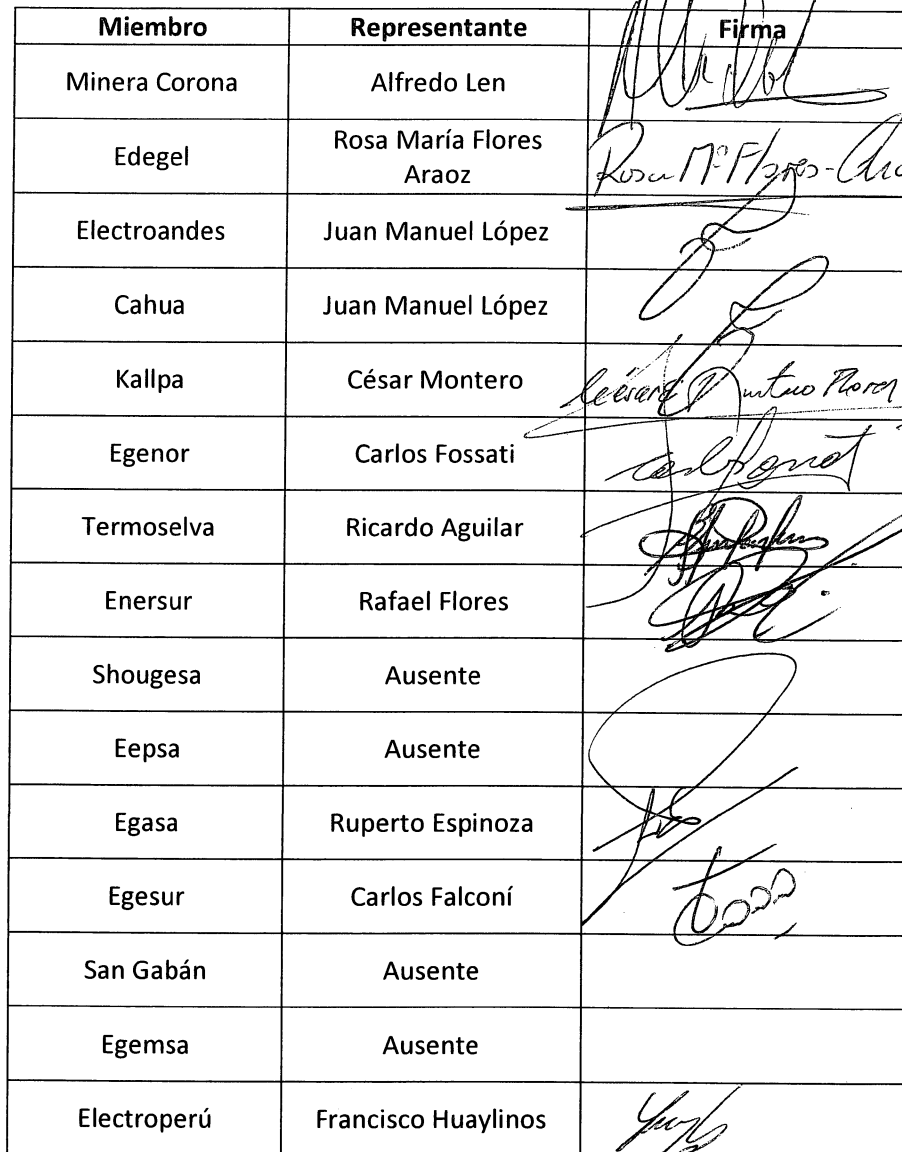 Miembro Representante Firma
Minera Corona Alfredo Len
Edegel Rosa María Flores
Araoz
Rosa Mª Flores-Ara
Electroandes Juan Manuel López
Cahua Juan Manuel López
Kallpa César Montero
Egenor Carlos Fossati
Termoselva Ricardo Aguilar
Enersur Rafael Flores
Shougesa Ausente
Eepsa Ausente
Egasa Ruperto Espinoza
Egesur Carlos Falconí
San Gabán Ausente
Egemsa Ausente
Electroperú Francisco Huaylinos